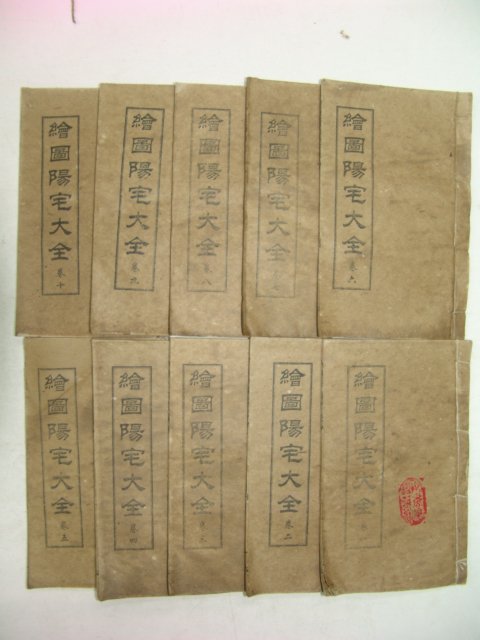 繪圖陽宅大全 卷六
繪圖陽宅大全 卷七
繪圖陽宅大全 卷八
繪圖陽宅大全 卷九
繪圖陽宅大全 卷十
繪圖陽宅大全 卷一
繪圖陽宅大全 卷二
繪圖陽宅大全 卷三
繪圖陽宅大全 卷四
繪圖陽宅大全 卷五